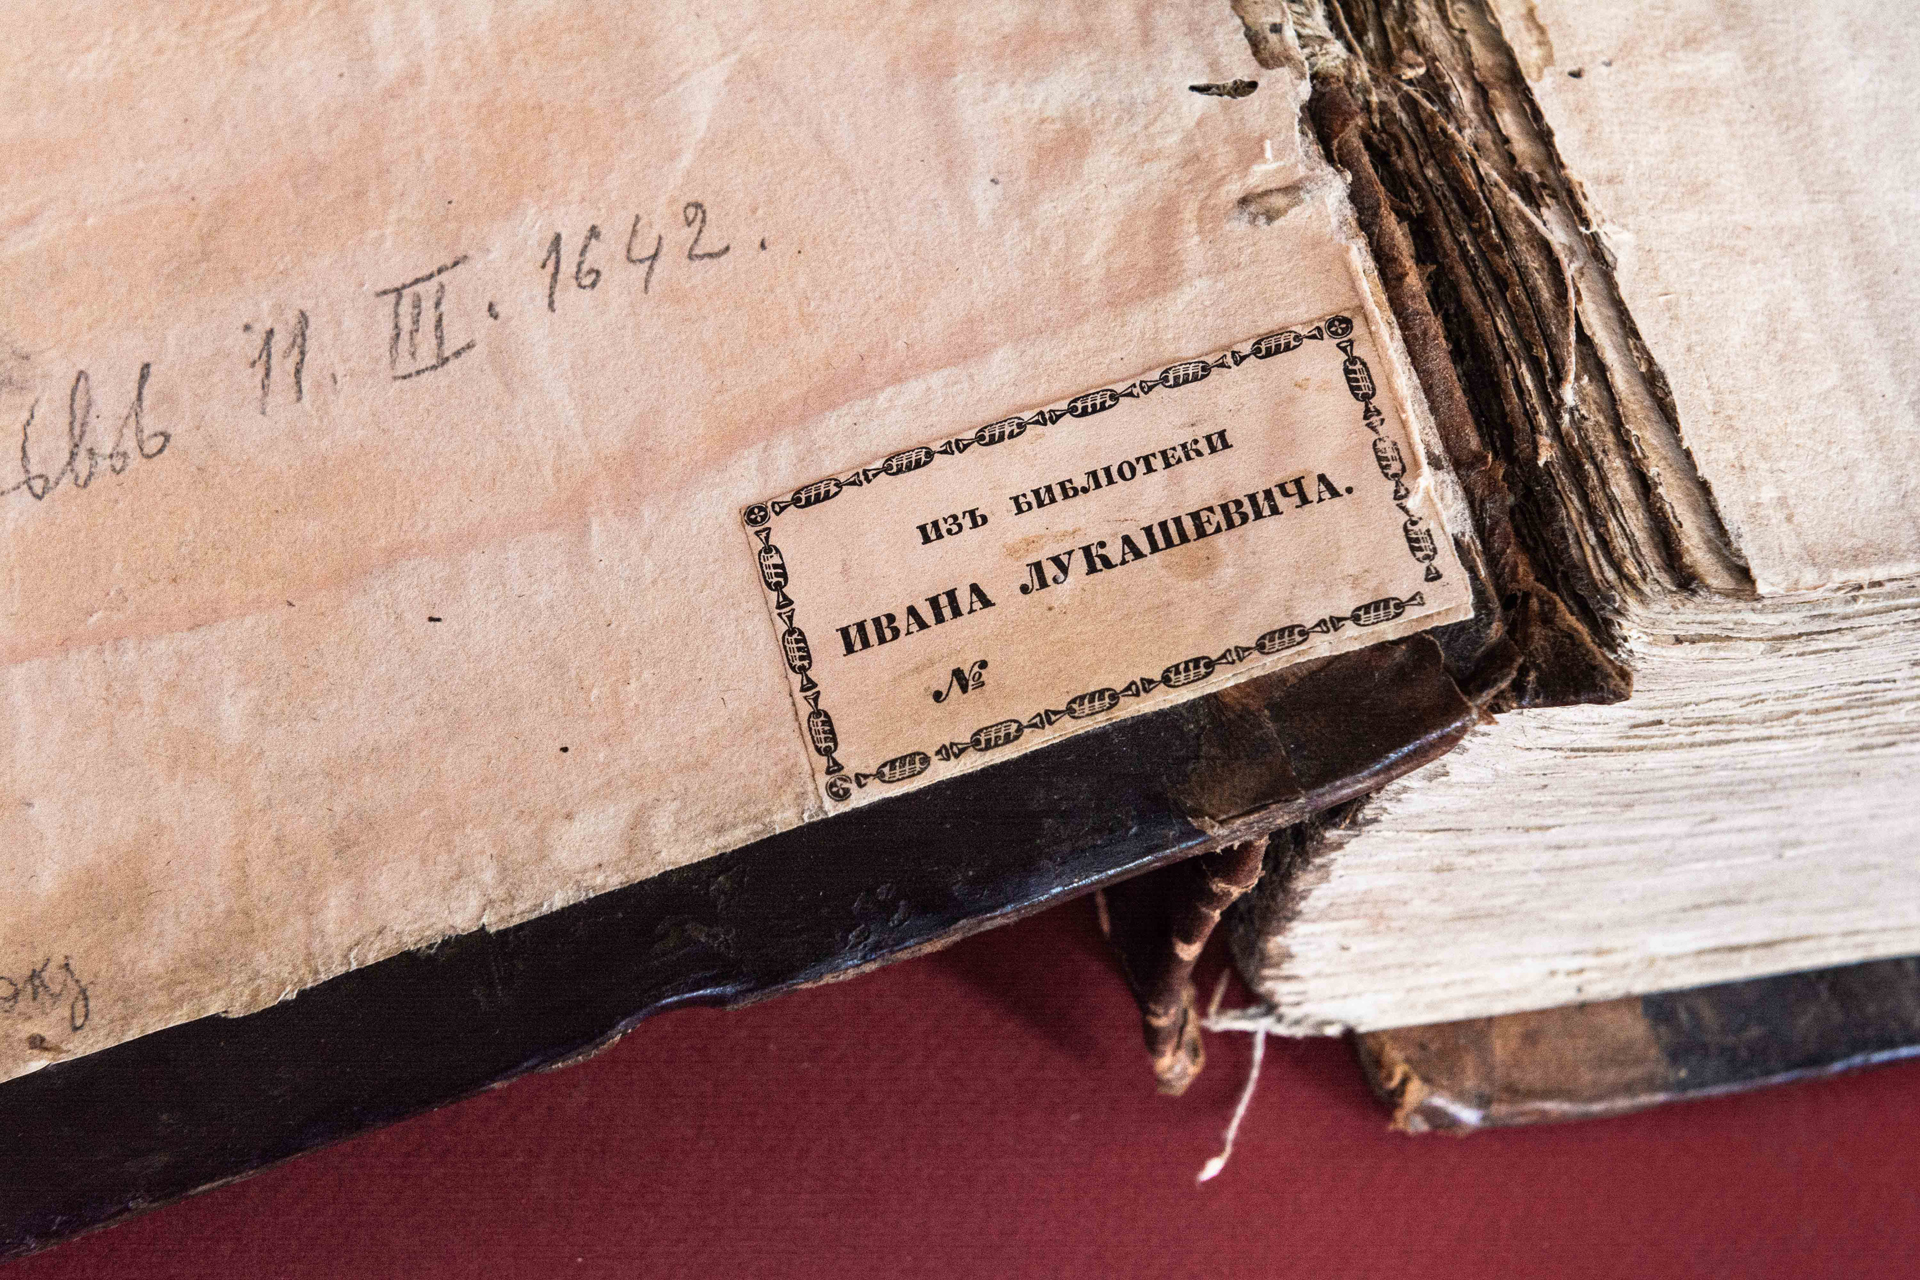 11. III. 1642.
изъ библіотеки
ИВАНА ЛУКАШЕВИЧА.
№